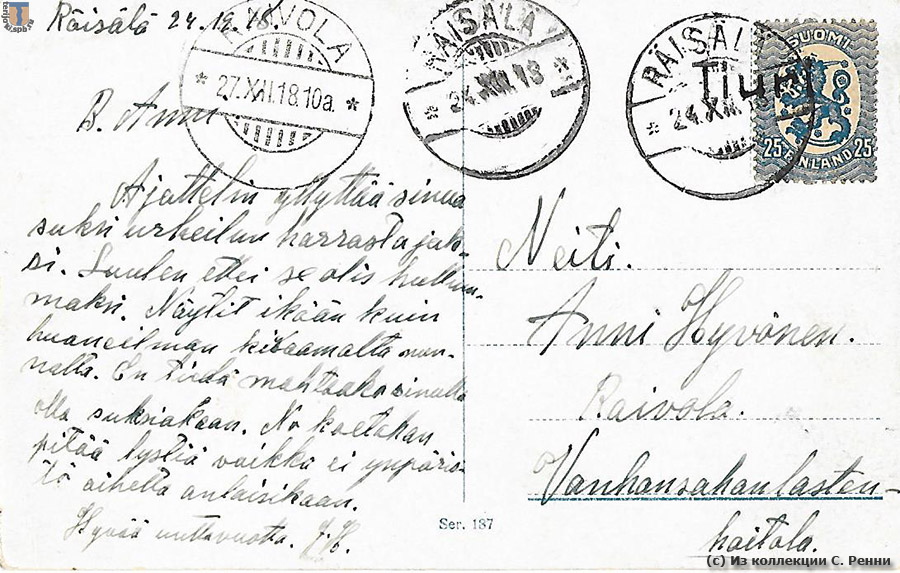 Räisälä 24.12.18
RAIVOLA
27.XII.18.10a.
RÄISÄLÄ
24.XII.18
RÄISÄLÄ
24.XII.
SUOMI
25 FINLAND 25
B. Anni
Ajattelin yllyttää sinua
suksi urheilun harrastajak-
si. Luulen ettei se olis hullum-
maksi. Näytit ikään kuin
huoneilman kivaamalta
nalta. En tiedä mahtaako sinulla
olla suksiakaan. No koetahan
pitää lystiä vaikka ei ympäris-
tö aihetta antaisikaan.
Hyvää uuttavuotta. J.H.
Neiti.
Anni Hyvönen.
Raivola.
Vanhansahanlasten-
hoitola.
Ser. 187
(c) Из коллекции С. Ренни